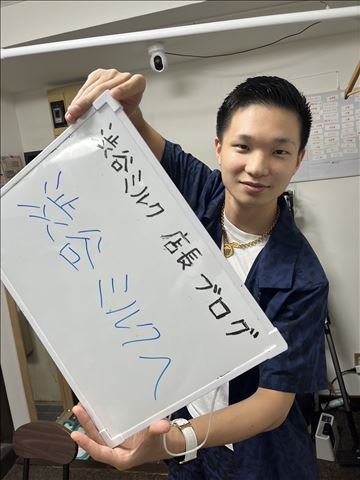 渋谷ミルク 店長ブログ
渋谷ミルクへ